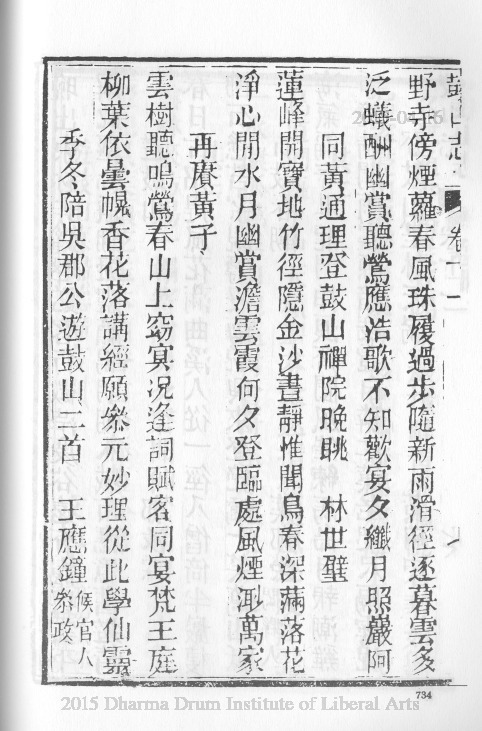 鼓山志 卷十一
野寺傍煙蘿春風珠履過步隨新雨滑徑逐暮雲多
泛蟻酬幽賞聽鶯應浩歌不知歡宴夕纖月照巖阿
同黃通理登鼓山禪院晚眺 林世璧
蓮峰開寶地竹徑隱金沙晝靜惟聞鳥春深滿落花
淨心開水月幽賞澹雲霞何夕登臨處風煙渺萬家
再賡黃子
雲樹聽鳴鶯春山上窈冥況逢詞賦客同宴梵王庭
柳葉依曇幌香花落講經願叅元妙理從此學仙靈
季冬陪吳郡公遊鼓山二首 王應鐘 候官人叅政
734
2015 Dharma Drum Institute of Liberal Arts